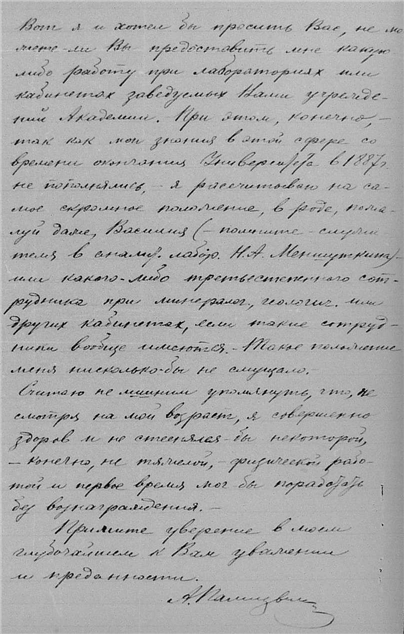 Вот я и хотел бы просить Вас, не мо-
жете-ли Вы предоставить мне какую
либо работу при лабораториях или
кабинетах заведуемых Вами учрежде-
ний Академии. При этом, конечно, –
так как мои знания в этой сфере со
времени окончания Университета в 1887 г.
не пополнялись, – я рассчитываю на са-
мое скромное положение, в роде, пожа-
луй даже, Василия (– помните – служи-
теля в химич. лабор. Н.А. Меншуткина) –
или какого-либо третьестепенного сот-
рудника при минералог., геологич. или
других кабинетах, если такие сотруд-
ники вообще имеются. – Такое положение
меня нисколько-бы не смущало. –
Считаю не лишним упомянуть, что, не
смотря на мой возраст, я совершенно
здоров и не стеснялся-бы некоторой,
– конечно, не тяжелой, – физической рабо-
той и первое время мог-бы поработать
без вознаграждения. –
Примите уверение в моем
глубочайшем к Вам уважении
и преданности.
А.